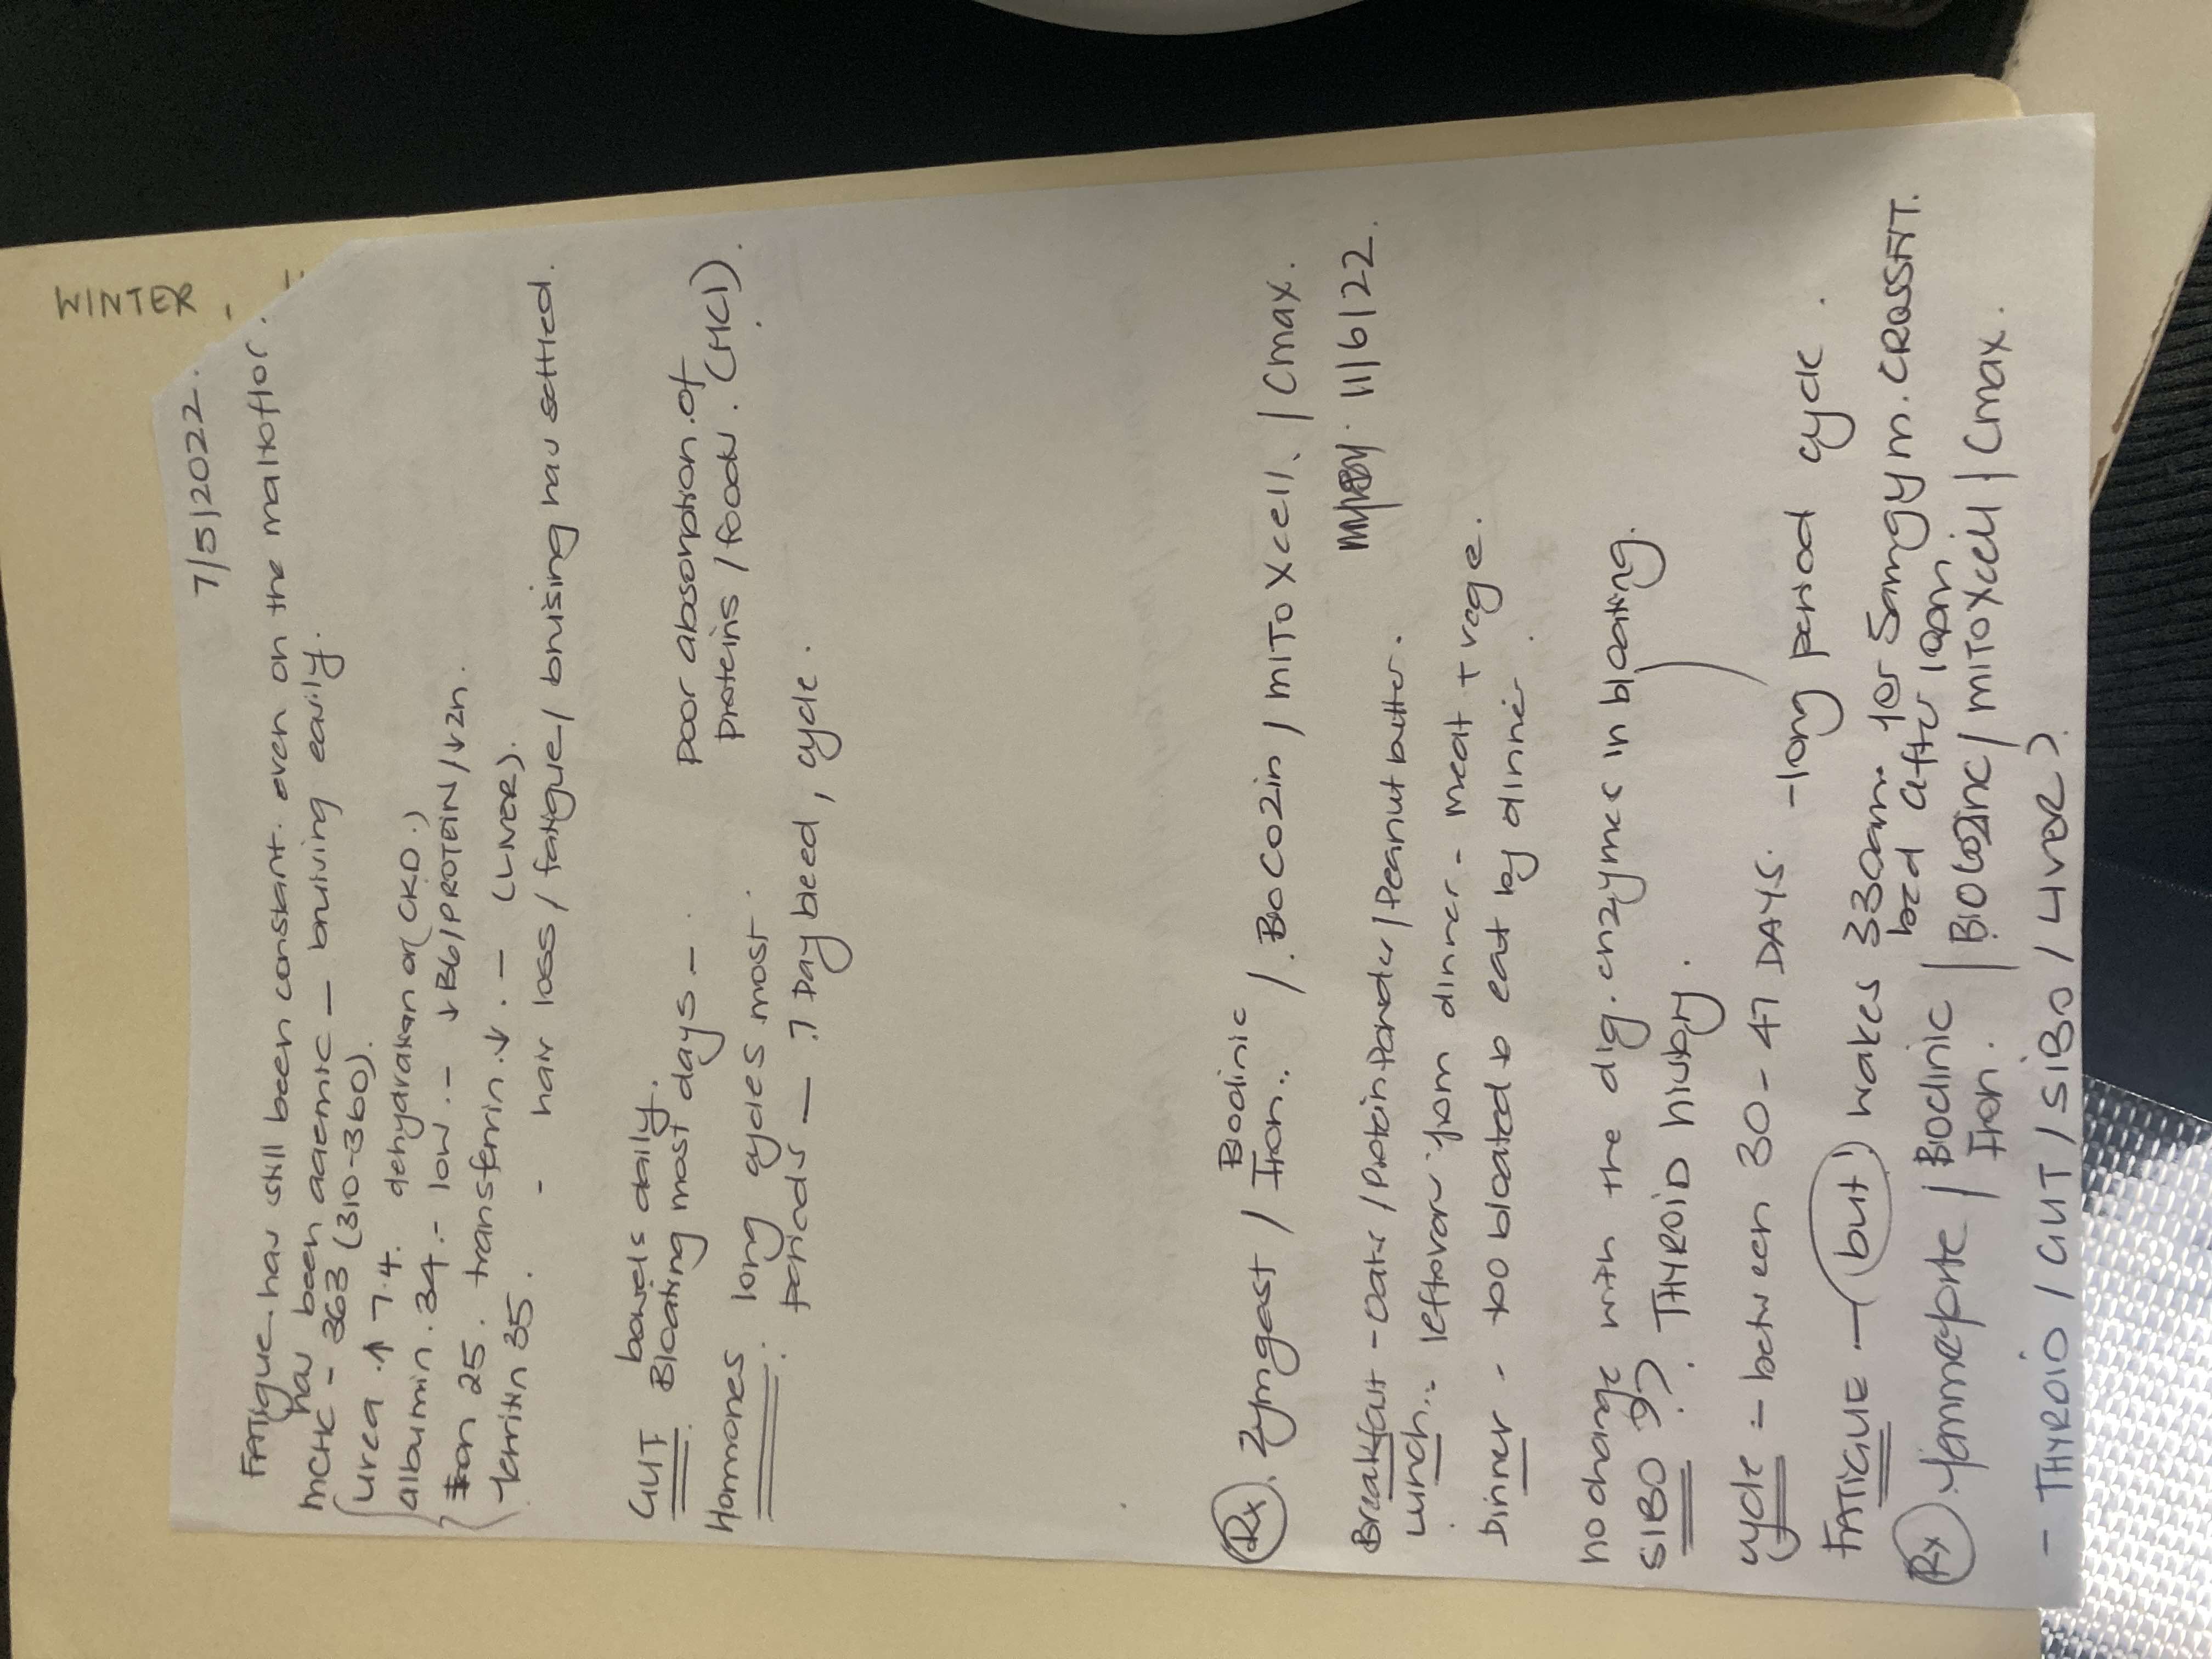 WINTER.
7/5/2022.
FATigue has still been constant. even on the maltoflor.
has been anaemic — bruising easily.
MCHC - 363 (310-360).
urea ↑ 7.4. dehydration or (CKD.)
albumin. 34 - low. - ↓ B6/PROTEIN/↓zn.
Iron 25. transferrin ↓. - (LIVER).
ferritin 35. - hair loss/fatigue/bruising has settled.
GUT bowels daily.
Bloating most days -
poor absorption of
proteins/foods. (HCl).
Hormones: long cycles most.
periods — 7 Day bleed, cycle.
Rx. Zymgast / Bioclinic Iron. / BIOCOzin / MITOXcell. / Cmax.
11/6/22
Breakfast - Oats / Protein Powder / Peanut butter.
Lunch - leftovers from dinner - meat + vege.
Dinner - too bloated to eat by dinner
no change with the dig. enzymes in bloating.
SIBO ??. THYROID history.
cycle - between 30 - 47 DAYS. - long period cycle.
FATIGUE — but wakes 330am for 5am gym. CROSSFIT.
bed after 10pm
Rx. / Bioclinic Iron. / BIOCOzinc / MITOXcell / Cmax.
- THYROID / GUT / SIBO / LIVER?